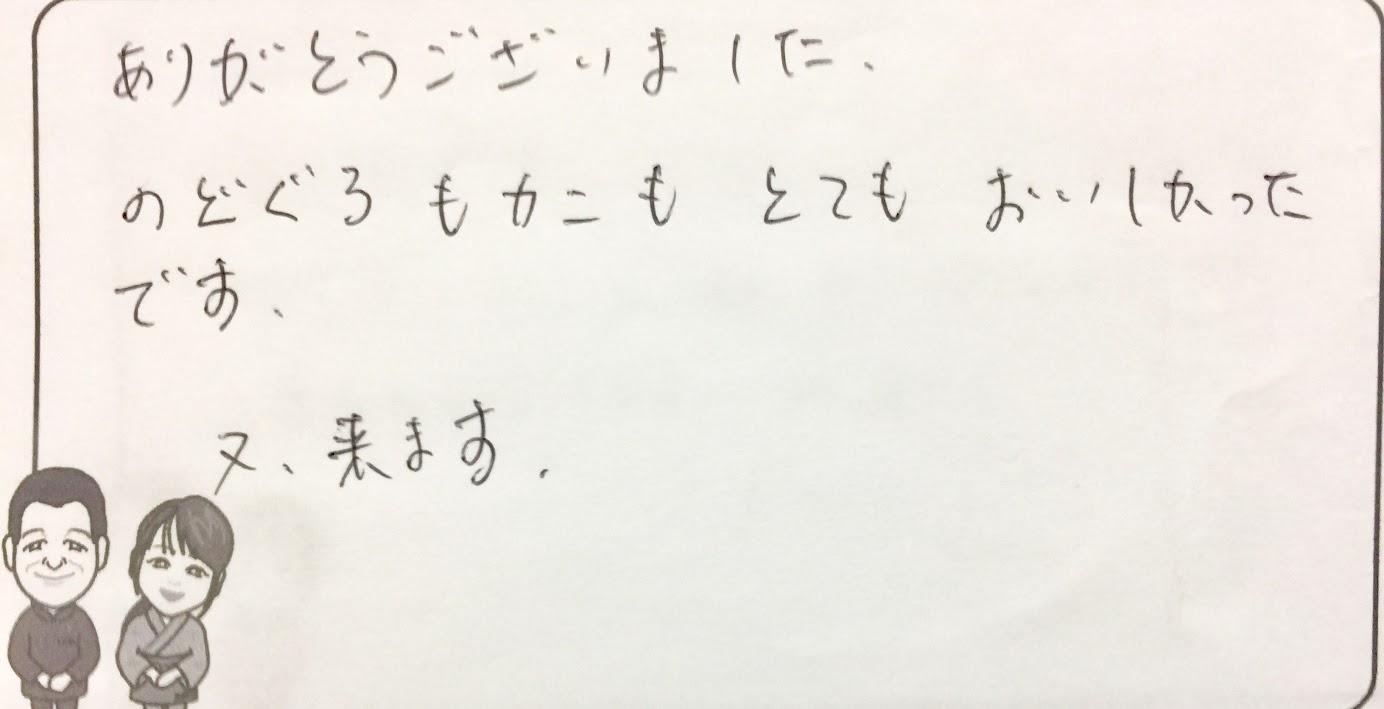 ありがとうございました、
のどぐろもカニも とても おいしかった
です、
又、来ます.